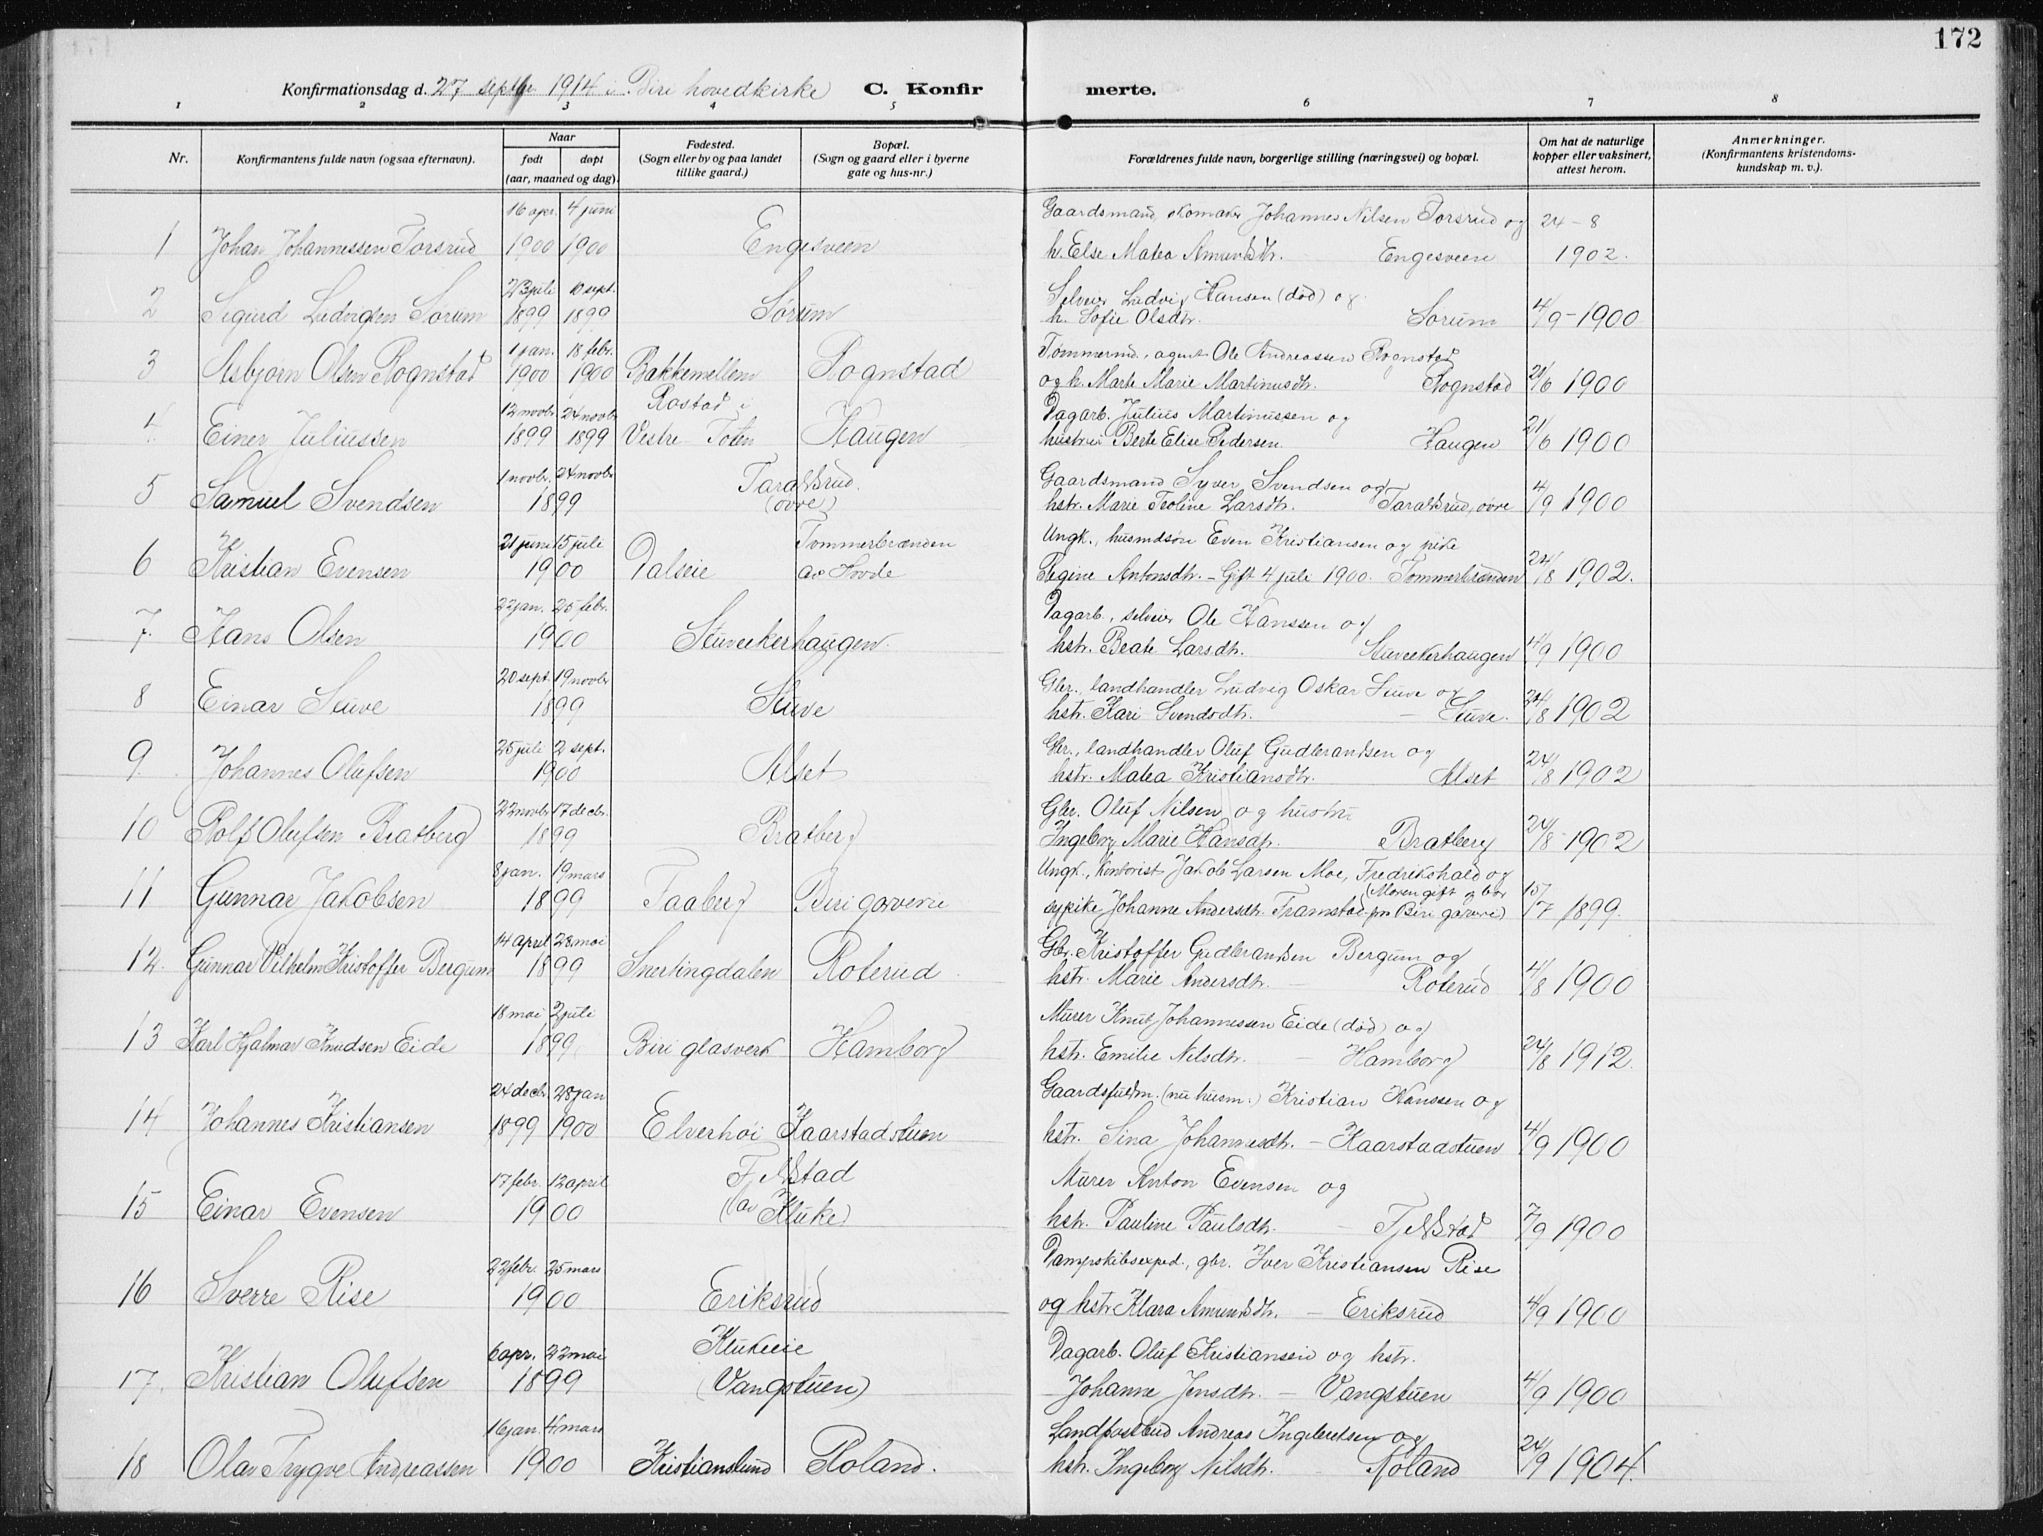 172
Konfirmationsdag d. 27 septbr 1914 i Biri hovedkirke C. Konfirmerte.
1 2 3 4 5 6 7 8
Nr. Konfirmantens fulde navn (ogsaa efternavn). Naar født døpt (aar, maaned og dag). Fødested. (Sogn eller by og paa landet tillike gaard.) Bopæl. (Sogn og gaard eller i byerne gate og hus-nr.) Forældrenes fulde navn, borgerlige stilling (næringsvei) og bopæl. Om hat de naturlige kopper eller vaksinert, attest herom. Anmerkninger. (Konfirmantens kristendomskundskap m. v.).
16 apr. 4 juni Gaardsmand, skomaker Johannes Nilsen Torsrud og 24-8
1 Johan Johannessen Torsrud 1900 1900 Engesveen h. Else Matea Amundsdtr. Engesveen 1902.
23 juli 10 sept. Selveier Ludvig Hansen (død) og
2 Sigurd Ludvigsen Sørum 1899 1899 Sørum h. Sofie Olsdtr. Sørum 4/9-1900
1 jan. 18 febr. Tømmermd., agent Ole Andreassen Rognstad
3 Asbjørn Olsen Rognstad 1900 1900 Bakkemellem Rognstad og h. Marte Marie Martinusdtr. Rognstad 21/6 1900
12 novbr. 24 novbr. Rostad i Dagarb. Julius Martinussen og
4 Einer Juliussen 1899 1899 Vestre Toten Haugen hustru Berte Elise Pedersen Haugen 21/6 1900
1 novbr. 24 novbr. Taraldsrud Gaardsmand Syver Svendsen og
5 Samuel Svendsen 1899 (øvre) hstr. Marie Teoline Larsdtr. Taraldsrud, øvre 4/9 1900
21 juni 15 juli Tømmerbrænden Ungk., husmdsøn Even Kristiansen og pike
6 Kristian Evensen 1900 Dalseie av Hovde Regine Antonsdtr. - Gift 4 juli 1900. Tømmerbrænden 24/8 1902.
22 jan. 25 febr. Dagarb., selveier Ole Hanssen og
7 Hans Olsen 1900 Stuveekerhaugen hstr. Beate Larsdtr. Stuveekerhaugen 4/9 1900
20 sept. 19 novbr. Gbr., landhandler Ludvig Oskar Stuve og
8 Einar Stuve 1899 Stuve hstr. Kari Svendsdtr. - Stuve. 24/8 1902
25 juli 2 sept. Gbr., landhandler Oluf Gudbrandsen og
9 Johannes Olufsen 1900 Alset hstr. Matea Kristiansdtr. Alset 24/8 1902
22 novbr. 17 decbr. Gbr. Oluf Nilsen og hustru
10 Rolf Olufsen Bratberg 1899 Bratberg Ingeborg Marie Hansdtr. Bratberg 24/8 1902
8 jan. 19 mars Ungk., kontorist Jakob Larsen Moe, Fredrikshald og
11 Gunnar Jakobsen 1899 Faaberg Biri garveri sypike Johanne Andersdtr. Framstad (Moren gift og bor paa Biri garveri) 15/7 1899.
14 april 28 mai Gbr. Kristoffer Gudbrandsen Bergum og
12. Gunnar Vilhelm Kristoffer Bergum 1899 Snertingdalen Roterud hstr. Marie Andersdtr. - Roterud 4/8 1900
18 mai 2 juli Murer Knut Johannessen Eide (død) og
13 Karl Hjalmar Knudsen Eide 1899 Biri glasverk Hamborg hstr. Emilie Nilsdtr. - Hamborg 24/8 1912.
24 decbr. 28 jan Gaardsfuldm. (nu husm.) Kristian Hanssen og
14 Johannes Kristiansen 1899 1900 Elverhøi Kaarstadstuen hstr. Sina Johannesdtr. - Kaarstadstuen 4/9 1900
17 febr. 12 april Fjeldstad Murer Anton Evensen og
15 Einar Evensen 1900 (av Kluke) hstr. Pauline Paulsdtr. - Fjeldstad 7/9 1900
22 febr. 25 mars Dampskibsexped., gbr. Iver Kristiansen Rise
16 Sverre Rise 1900 Eriksrud og hstr Klara Amundsdtr. - Eriksrud 4/9 1900
6 apr. 22 mai Klukeeie Dagarb. Oluf Kristiansen og hstr.
17. Kristian Olufsen 1899 (Vangstuen) - Johanne Jensdtr. - Vangstuen 4/9 1900
16 jan. 4 mars Landpostbud Andreas Ingebretsen og
18 Olav Trygve Andreassen 1900 Kristianslund Roland. hstr. Ingeborg Nilsdtr. Roland 24/9 1904.